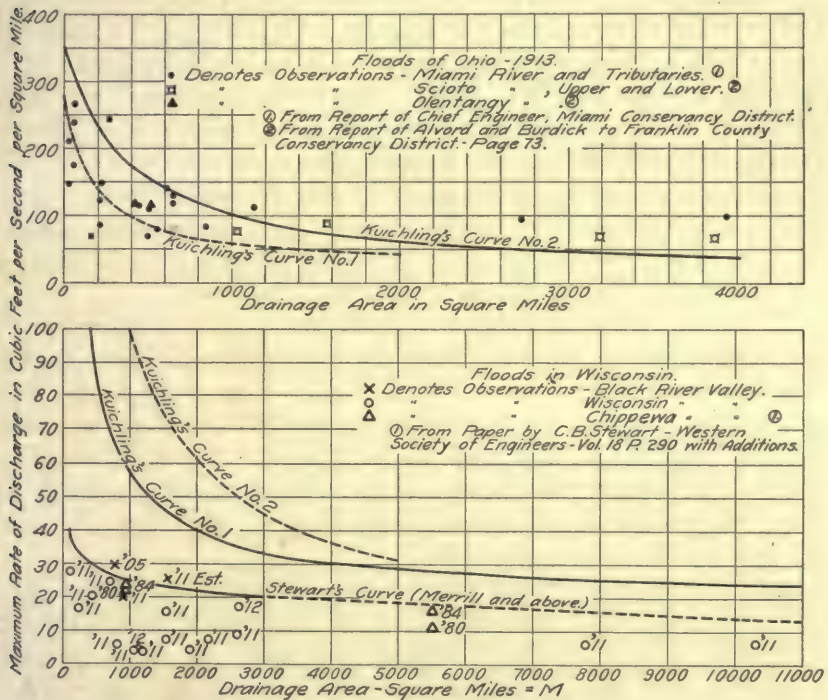 Maximum Rate of Discharge in Cubic Feet per Second per Square Mile.
400
300
200
100
0
Floods of Ohio - 1913.
Denotes Observations - Miami River and Tributaries. ①
" " Scioto " , Upper and Lower. ②
" " Olentangy " ②
① From Report of Chief Engineer, Miami Conservancy District.
② From Report of Alvord and Burdick to Franklin County
Conservancy District.- Page 73.
Kuichling's Curve No.2
Kuichling's Curve No.1
0 1000 2000 3000 4000
Drainage Area in Square Miles
100
90
80
70
60
50
40
30
20
10
0
Floods in Wisconsin.
Denotes Observations - Black River Valley.
" " Wisconsin " "
" " Chippewa " " ①
① From Paper by C.B. Stewart - Western
Society of Engineers - Vol. 18 P. 290 with Additions.
Kuichling's Curve No.2
Kuichling's Curve No.1
Stewart's Curve (Merrill and above.)
'05
'11 '11 '11 Est.
'84
'11 '80 '11
'11 '11 '12
'84
'80
'11 '12 '11 '11 '11
'11 '11 '11
'11 '11
0 1000 2000 3000 4000 5000 6000 7000 8000 9000 10000 11000
Drainage Area - Square Miles = M